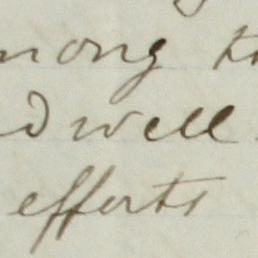 mong th
d well
efforts